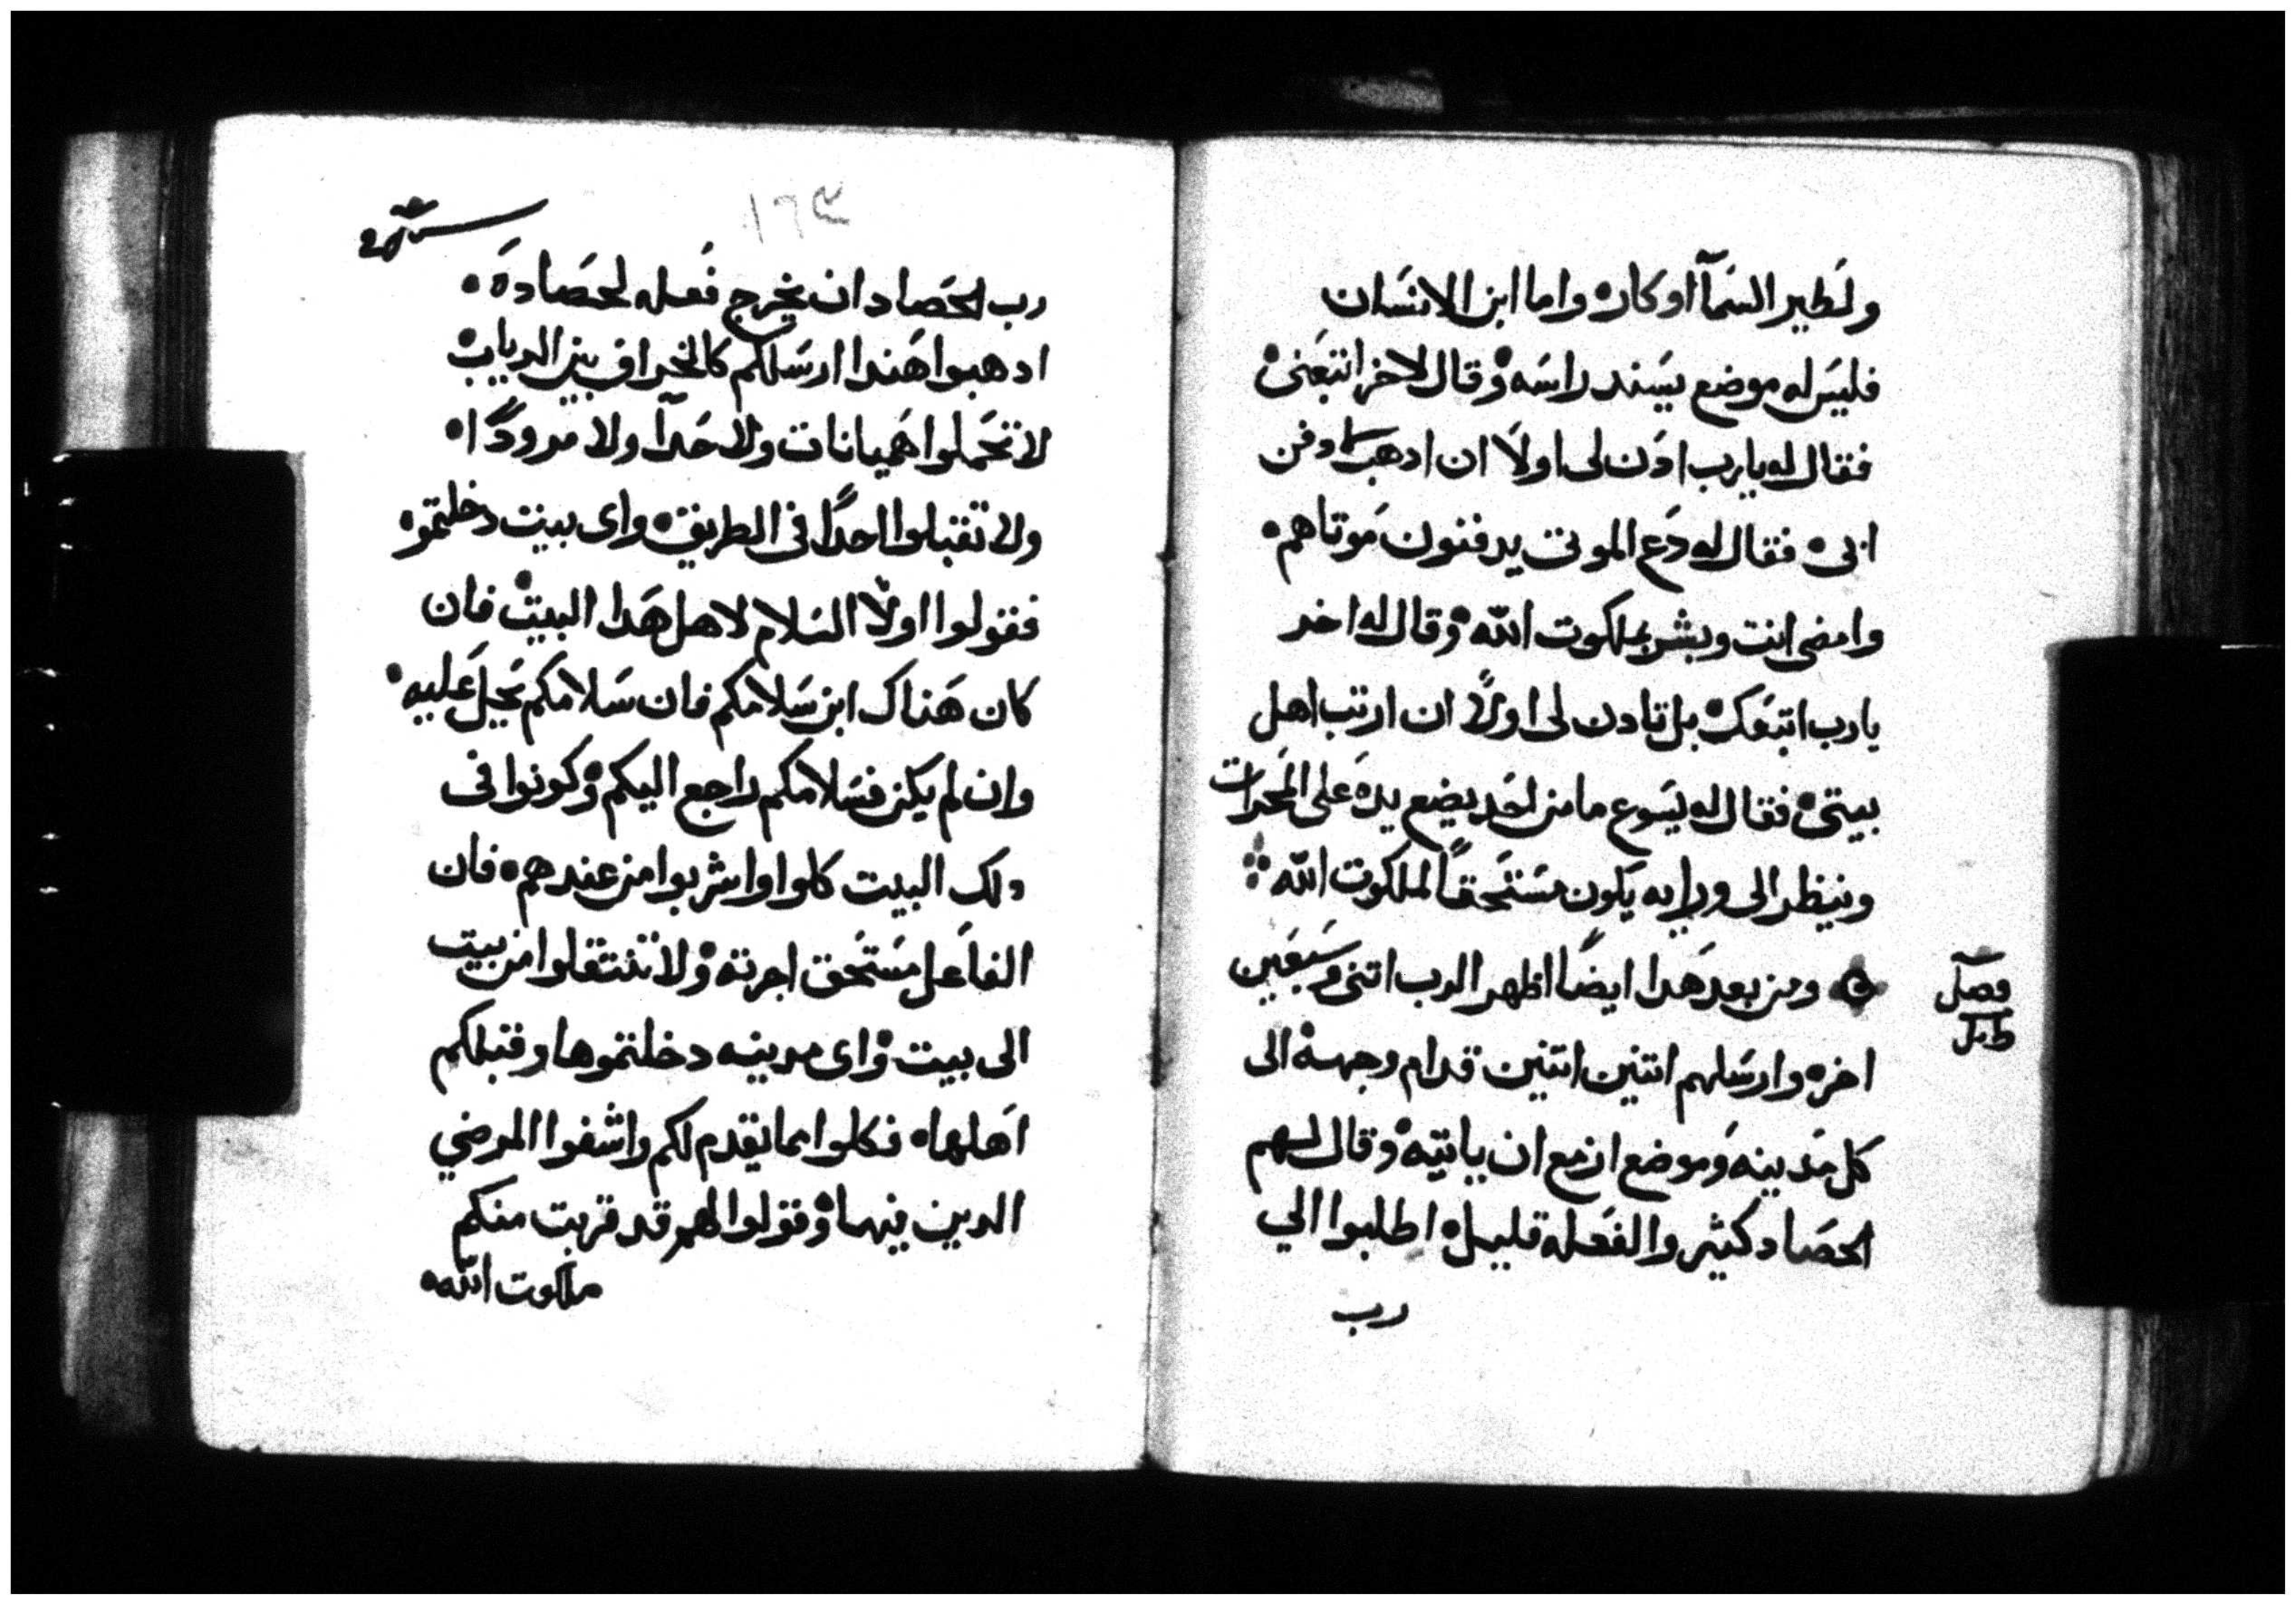 ولطير السمآ اوكاره واما ابن الانسان
فليس له موضع يسند راسه وقال لاخر اتبعنى
فقال له يارب ادن لى اولاً ان ادهب وادفن
ابى فقال له دع الموتى يدفنون موتاهم
وامضى انت وبشر بملكوت الله وقال له اخر
يارب اتبعك بل تادن لى اولاً ان ارتب اهل
بيتى فقال له يسوع مامن احد يضع يده على المحرات
وينظر الى ورايه يكون مستحقاً لملكوت الله
فصل
ومن بعد هدا ايضاً اظهر الرب اتنى وسبعين
اخره وارسلهم اتنين اتنين قدام وجهه الى
كل مدينه وموضع ازمع ان ياتيه وقال لهم
الحصاد كثير والفعله قليل اطلبوا الي
رب
١٦٣
رب الحصاد ان يخرج فعله لحصاده
ادهبوا هندا ارسلكم كالخراف بين الدياب
لا تحملوا هميانات ولا حدآ ولا مرودًا
ولا تقبلوا احدًا فى الطريق واى بيت دخلتموه
فقولوا اولاً السلام لاهل هدا البيت فان
كان هناك ابن سلامكم فان سلامكم يحل عليه
وان لم يكن فسلامكم راجع اليكم وكونوا فى
دلك البيت كلوا واشربوا من عندهم فان
الفاعل مستحق اجرته ولا تنتقلوا من بيت
الى بيت واى مدينه دخلتموها وقبلكم
اهلها فكلوا مما يقدم لكم واشفوا المرضي
الدين فيها وقولوا لهم قد قربت منكم
ملكوت الله